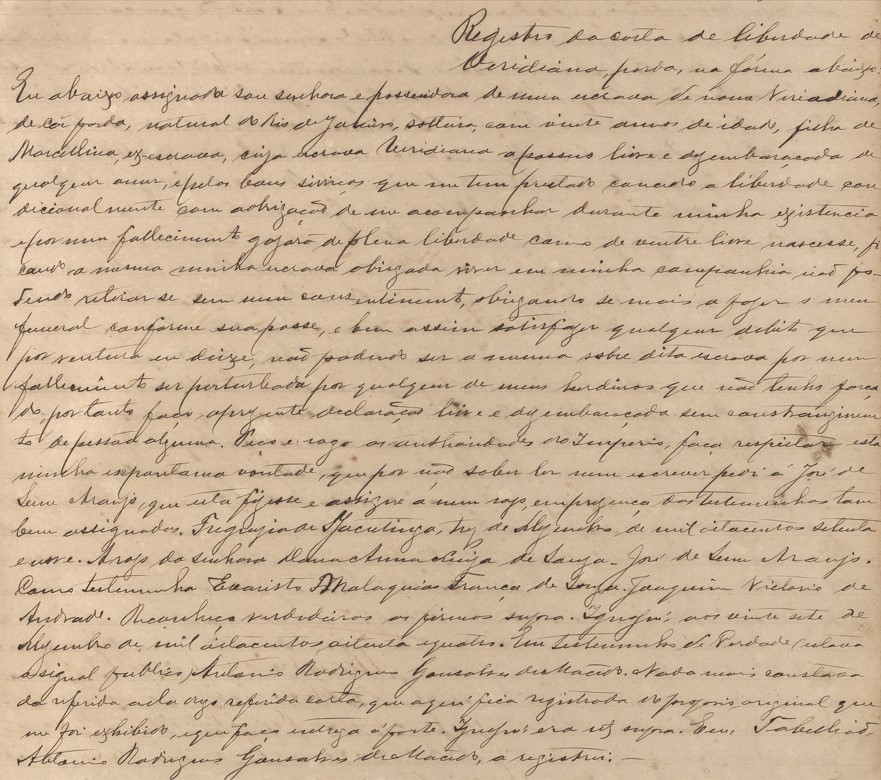 Registro da carta de liberdade de
Veridiana, parda, na fórma abaixo.
Eu abaixo assignada sou senhora e possuidora de uma escrava de nome Viridiana,
de côr parda, natural do Rio de Janeiro, solteira, com vinte annos de idade, filha de
Marcellina, ex-escrava, cuja escrava Veridiana a possuo livre e dezembaraçada de
qualquer onus, e pelos bons serviços que me tem prestado concedo a liberdade con
dicionalmente com aobrigação de me acompanhar durante minha existencia
e por meu fallecimento gozará de plena liberdade como de ventre livre nascesse, fi
cando a mesma minha escrava obrigada viver em minha companhia não po-
dendo retirar se sem meu consentimento, obrigando se mais a fazer o meu
funeral conforme sua posse, e bem assim satisfazer qualquer debito que
por ventura eu deixe, não podendo ser a mesma sobre dita escrava por meu
fallecimento ser perturbada por qualquer de meus herdeiros que não tenho força
do, por tanto faço a prezente declaração livre e dezembaraçada sem constrangimen
to de pessôa alguma. Peço e rogo as authoridades do Imperio, faça respeitar esta
minha expontania vontade, que por não saber ler nem escrever pedi á José de
Araujo, que esta fizesse e assigne á meu rogo, em prezença das testeminhas tam
bem assignados. Freguezia de Jacutinga, trez de Dezembro de mil oitocentos setenta
e nove. Arogo da senhora Dona Anna Luiza de Souza - José de Araujo.
Como testeminha Evaristo Malaquias França de Souza. Joaquim Victorio de
Andrade. Reconheço verdadeiras as firmas supra. Iguassú, aos vinte sete de
Dezembro de mil oitocentos oitenta e quatro. Em testemunho de Verdade (estava
o signal publico) Antonio Rodrigues Gonsalves de Macêdo. Nada mais constava
da referida carta, que aqui fica registrada do proprio original que
me foi exhibido, e que faço entrega á parte. Iguassú era ut supra. Eu, Tabellião,
Antonio Rodrigues Gonsalves de Macêdo, a registrei. -